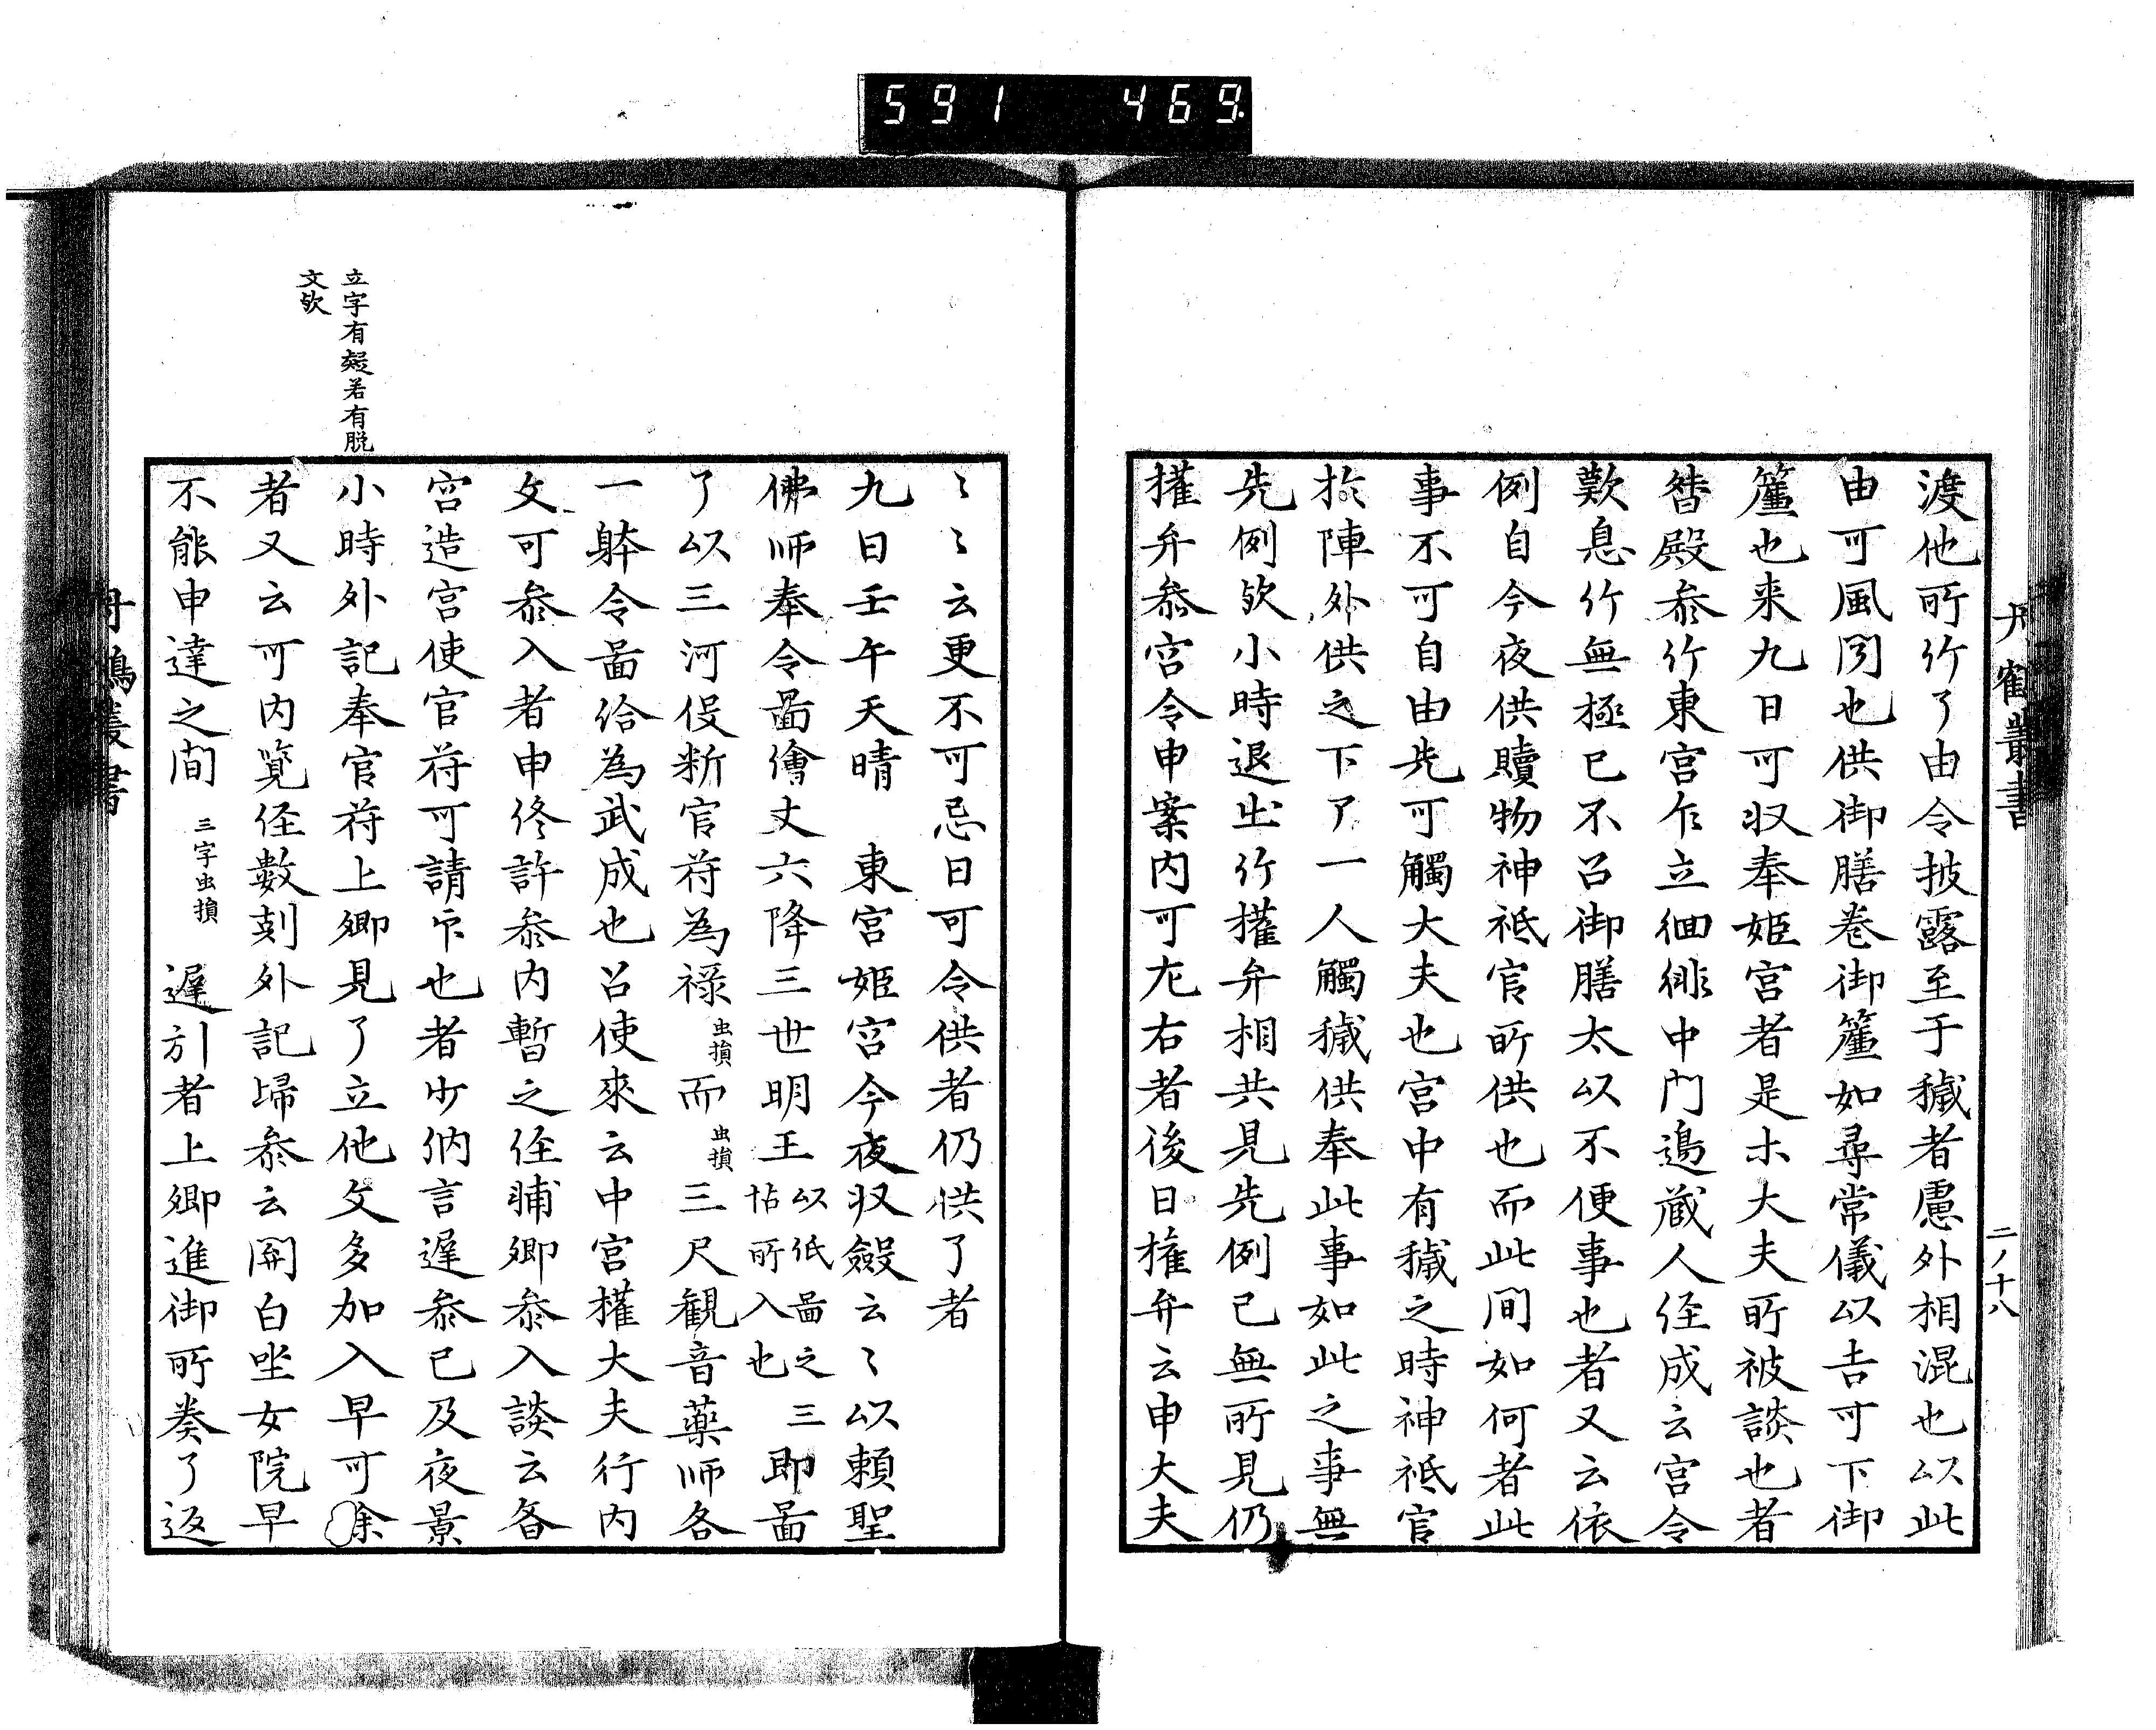 591 469
丹鶴叢書
二ノ十八
渡他所竹了由令披露至于穢者慮外相混也以此
由可風聞也供御膳巻御簾如尋常儀以吉可下御
簾也来九日可収奉姫宮者是木大夫所被談也者
昝殿叅竹東宮乍立徊徘中門邉蔵人侄成云宮令
歎息竹無極已不召御膳太以不便事也者又云依
例自今夜供贖物神祇官所供也而此間如何者此
事不可自由先可觸大夫也宮中有穢之時神祇官
於陣外供之下了一人觸穢供奉此事如此之事無
先例欤小時退出竹權弁相共見先例已無所見仍
權弁叅宮令申案内可尤右者後日権弁云申大夫
〻〻云更不可忌日可令供者仍供了者
九日壬午天晴 東宮姫宮今夜収斂云〻以頼聖
佛師奉令啚繪丈六降三世明王以紙啚之三帖所入也即啚
了以三河役断官符為禄虫損而虫損三尺観音藥師各
一躰令啚給為武成也召使來云中宮權大夫行内
文可叅入者申俢許叅内暫之侄晡卿叅入談云畓
宮造宮使官符可請印也者少納言遲叅已及夜景
小時外記奉官符上卿見了立他文多加入早可余
者又云可内覧侄數刻外記歸叅云関白坐女院早
不能申達之間 三字虫損 遲引者上卿進御所奏了返
立字有疑若有脱
文欤
丹鶴叢書